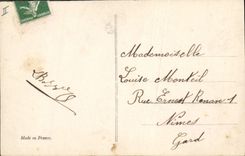 Mademoiselle
Louise Monteil
Rue Ernest Renan 1
Nimes
Gard
Made in France.